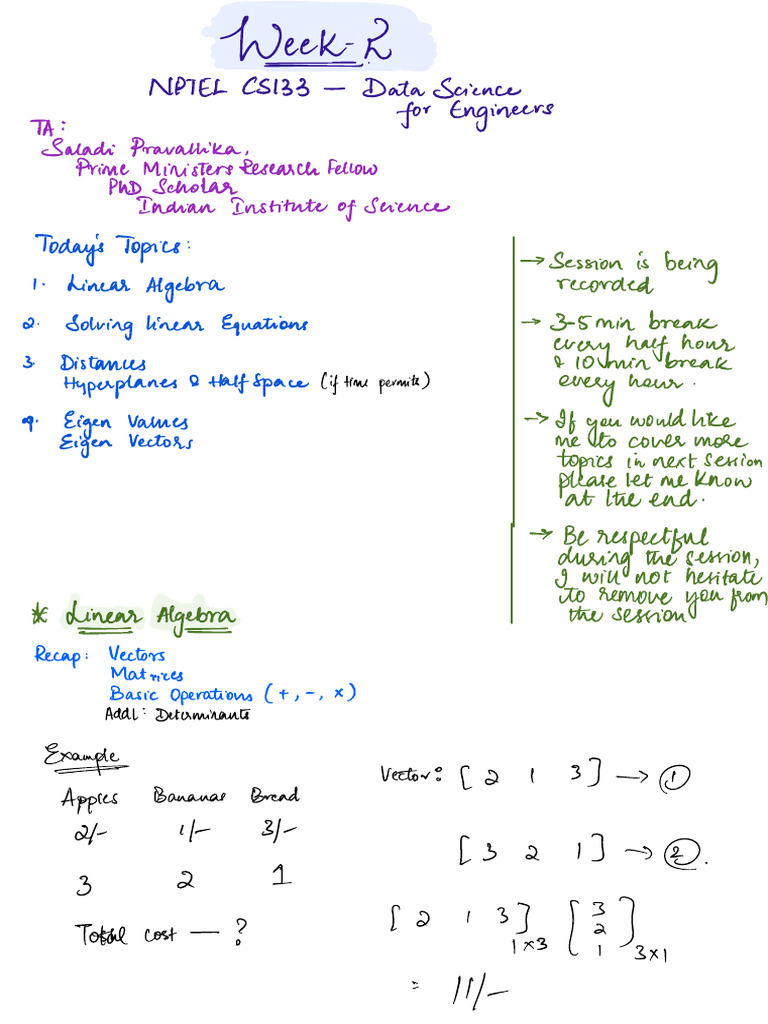 Week-2
NPTEL CS133 — Data Science
for Engineers
TA:
Saladi Pravallika,
Prime Ministers Research Fellow
PhD Scholar
Indian Institute of Science
Today's Topics:
1. Linear Algebra
2. Solving linear Equations
3. Distances
Hyperplanes & Half Space (if time permits)
4. Eigen Values
Eigen Vectors
→ Session is being
recorded
→ 3-5 min break
every half hour
& 10 min break
every hour.
→ If you would like
me to cover more
topics in next session
please let me know
at the end.
→ Be respectful
during the session,
I will not hesitate
to remove you from
the session
* Linear Algebra
Recap: Vectors
Matrices
Basic Operations (+, -, ×)
Addl: Determinants
Example
Apples Bananas Bread
2/- 1/- 3/-
3 2 1
Total cost — ?
Vector: [ 2 1 3 ] → ①
[ 3 2 1 ] → ②.
[ 2 1 3 ] 1×3 [ 3
2
1 ] 3×1
= 11/-